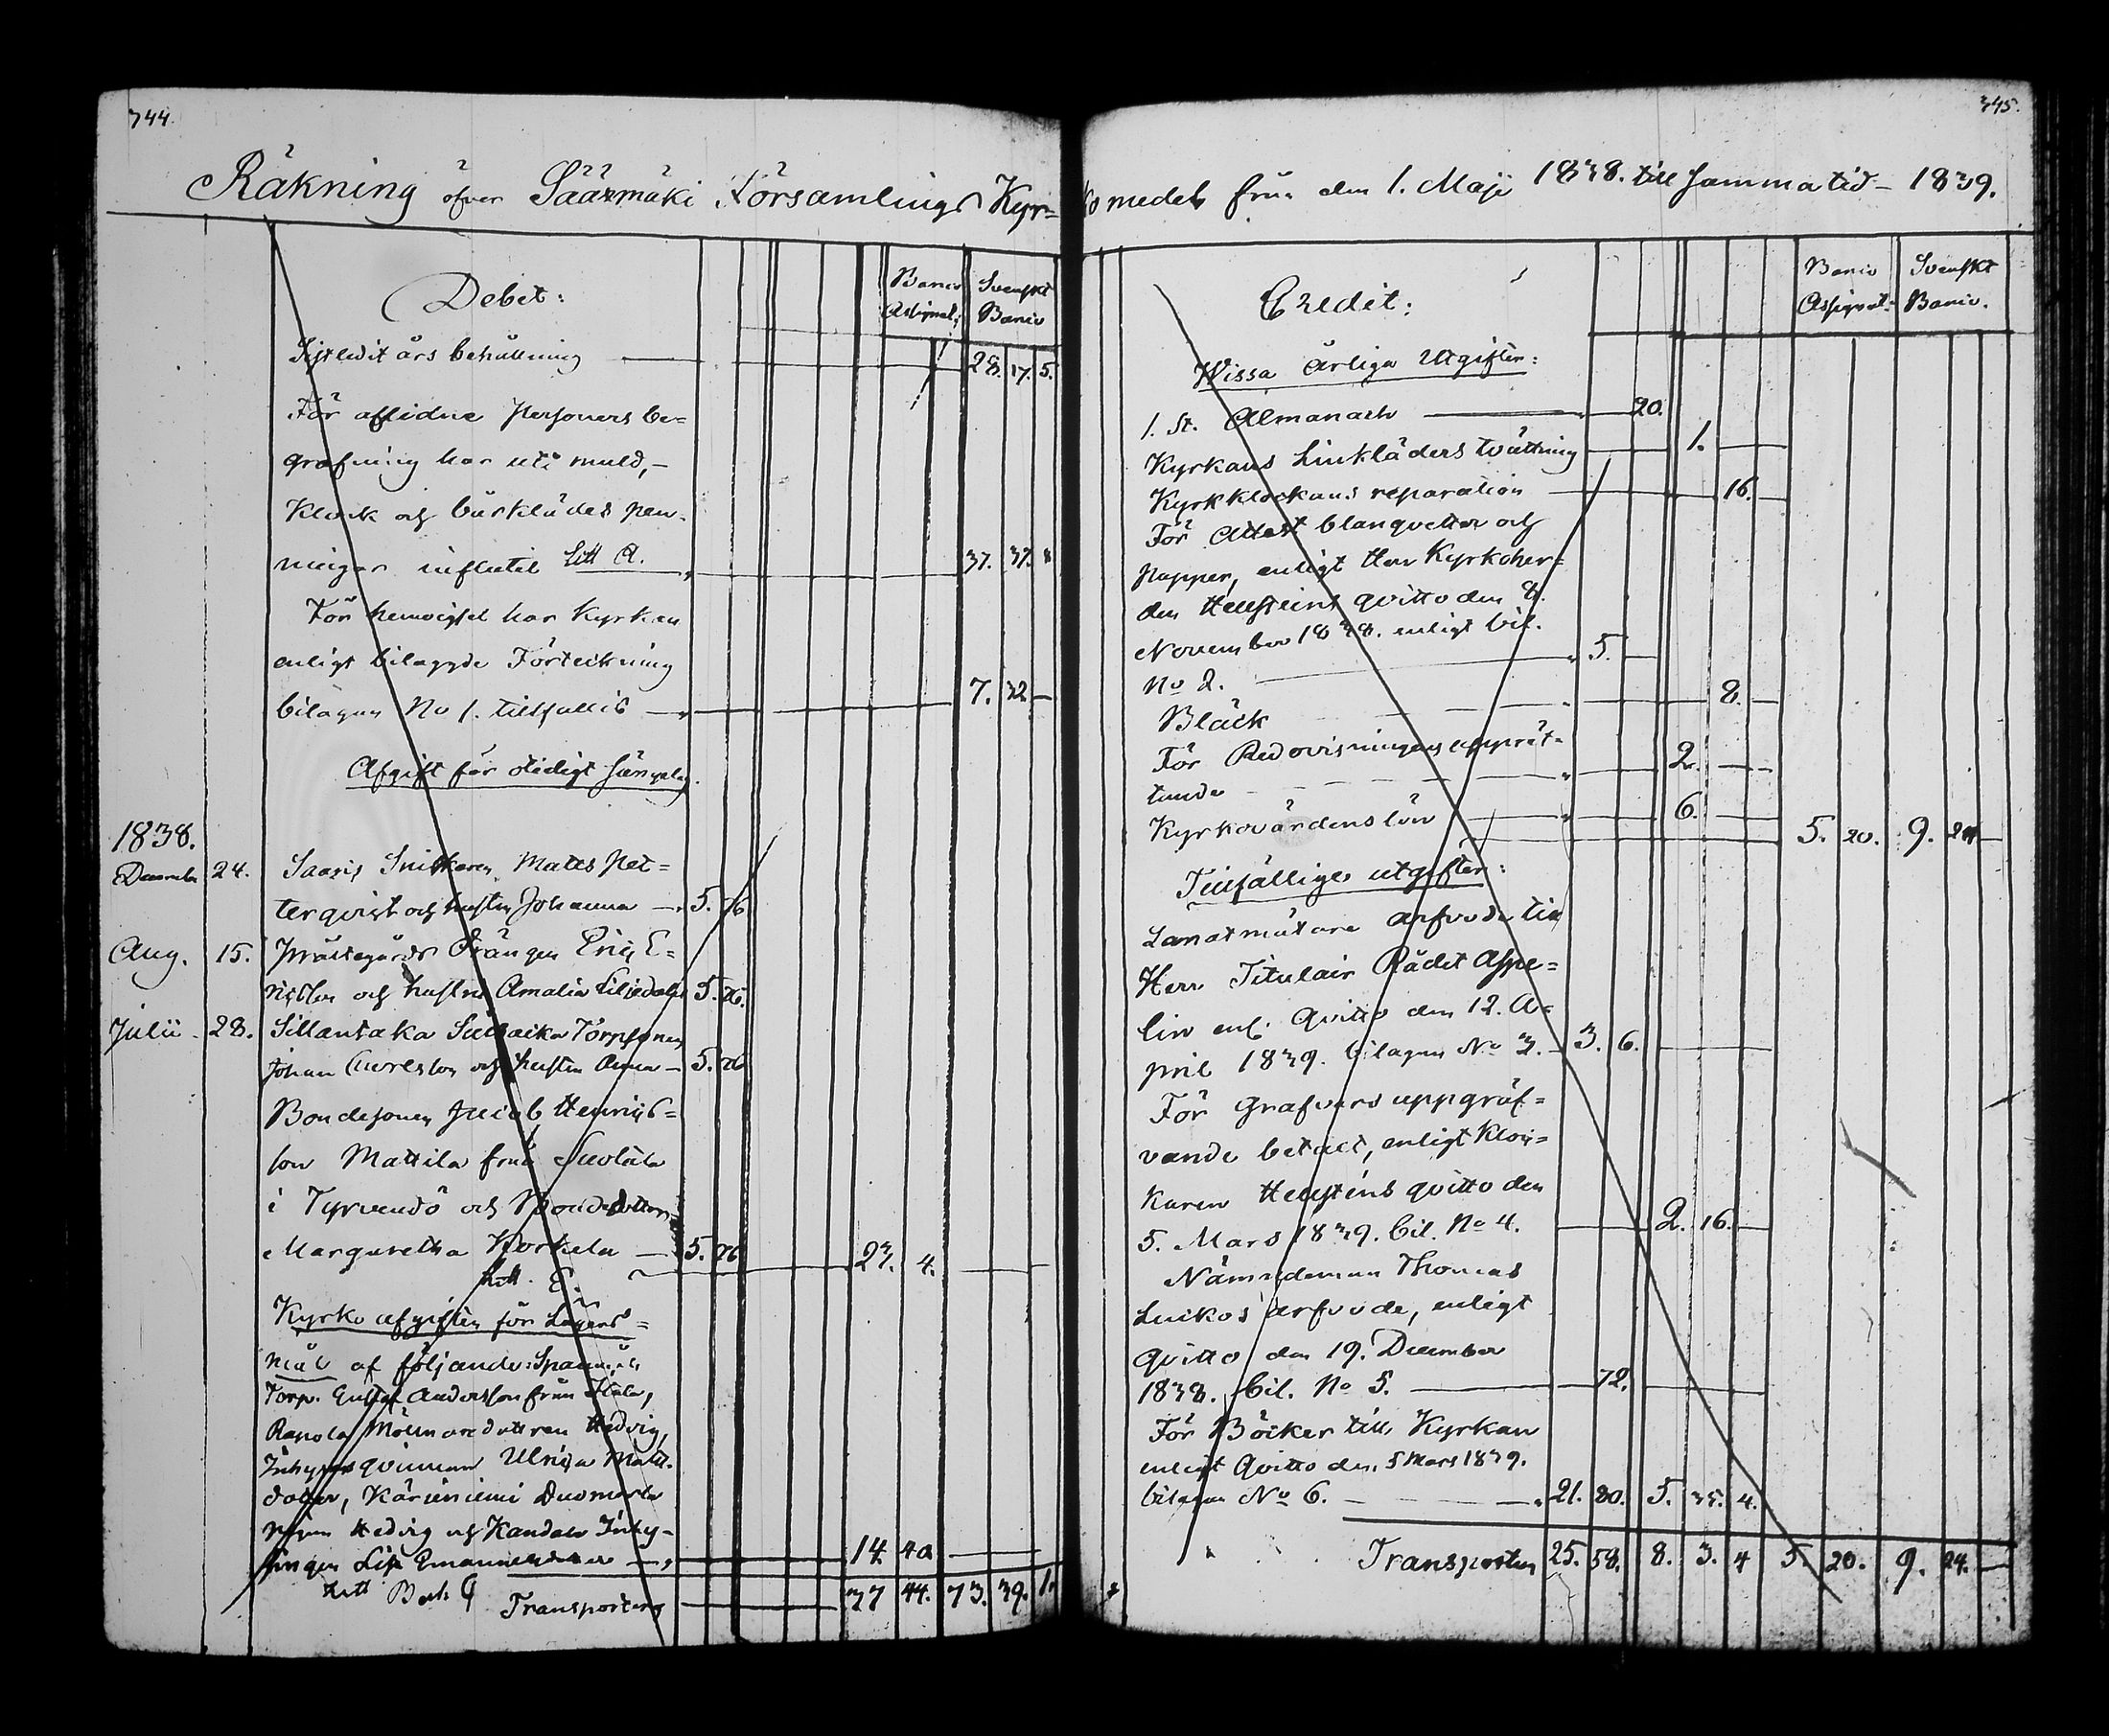 344.
Räkning öfver Sääxmäki Församlings Kyr=
Debet:
Banco Assignat: Svenskt Banco
Sistledit års behållning — 28. 17. 5.
För aflidne Personers be=
grafning har uti muld,-
Klock och bårklädes pen-
ningar influtit Litt A. — 37. 37. 8
För hemvigsel har Kyrkan
enligt bilagde Förteckning
bilagan No 1. tillfallit — 7. 32 —
Afgift för otidigt sängelag.
1838.
December 24. Saaris Snikaren Matts Pet=
terqvist och hustru Johanna — 5. 76
Aug. 15. Prästegårds Drängen Eric E=
ricsson och hustru Amalia Liljedahl 5. 76.
Julii - 28. Sillantaka Torpsonen
Johan Carlsson och hustru Anna — 5. 76
Bondesonen Jacob Henrics=
son Mattila från
i Tyrvendö och Bondedottren
Margaretha Korkela — 5. 76 23. 4.
Litt. E.
Kyrko afgiften för Lägers=
mål af följande:
Torp. Gustaf Andersson från
Rapola Mölnaredottren Hedvig,
Inhyses qvinnan Ulrica Matts.
dotter, Käriniemi
pigan Hedvig och Kandola Inhy-
singen Lisa — 14. 40
Litt B och G Transporteras — 37 44. 73. 39. 1.
345.
ko medel från den 1. Maji 1838. till samma tid - 1839.
Credit:
Banco Assignat: Svenskt Banco.
Wissa årliga Utgifter:
1. st. Allmanach — 20.
Kyrkans Linkläders tvättning — 1. —
Kyrkklockans reparation — 16. —
För Attest blanqvetter och
papper, enligt Herr Kyrkoher=
den Hellsteins qvitto den 8.
November 1838. enligt bil.
No 2. — 5. —
Bläck — 8. —
För Redovisningens upprät=
tande — 2. —
Kyrkovärdens lön — 6. — 5. 20. 9. 24 —
Tillfällige utgifter:
Landtmätare arfvode till
Herr Titulair Rådet Appe=
lin enl. Qvitto den 12. A=
pril 1839. bilagan No 3. — 3. 6. —
För Grafvars uppgräf=
vande betalt, enligt Kloc=
karen Hellsténs qvitto den
5. Mars 1839. bil. No 4. — 2. 16. —
Nämndeman Thomas
Luikos arfvode, enligt
Qvitto den 19. December
1838. bil. No 5. — 72. —
För Böcker till Kyrkan
enligt Qvitto den 5 Mars 1839.
bilagan No 6. — 21. 80. 5. 35. 4.
Transporteras 25. 58. 8. 3. 4 5. 20. 9. 24. —